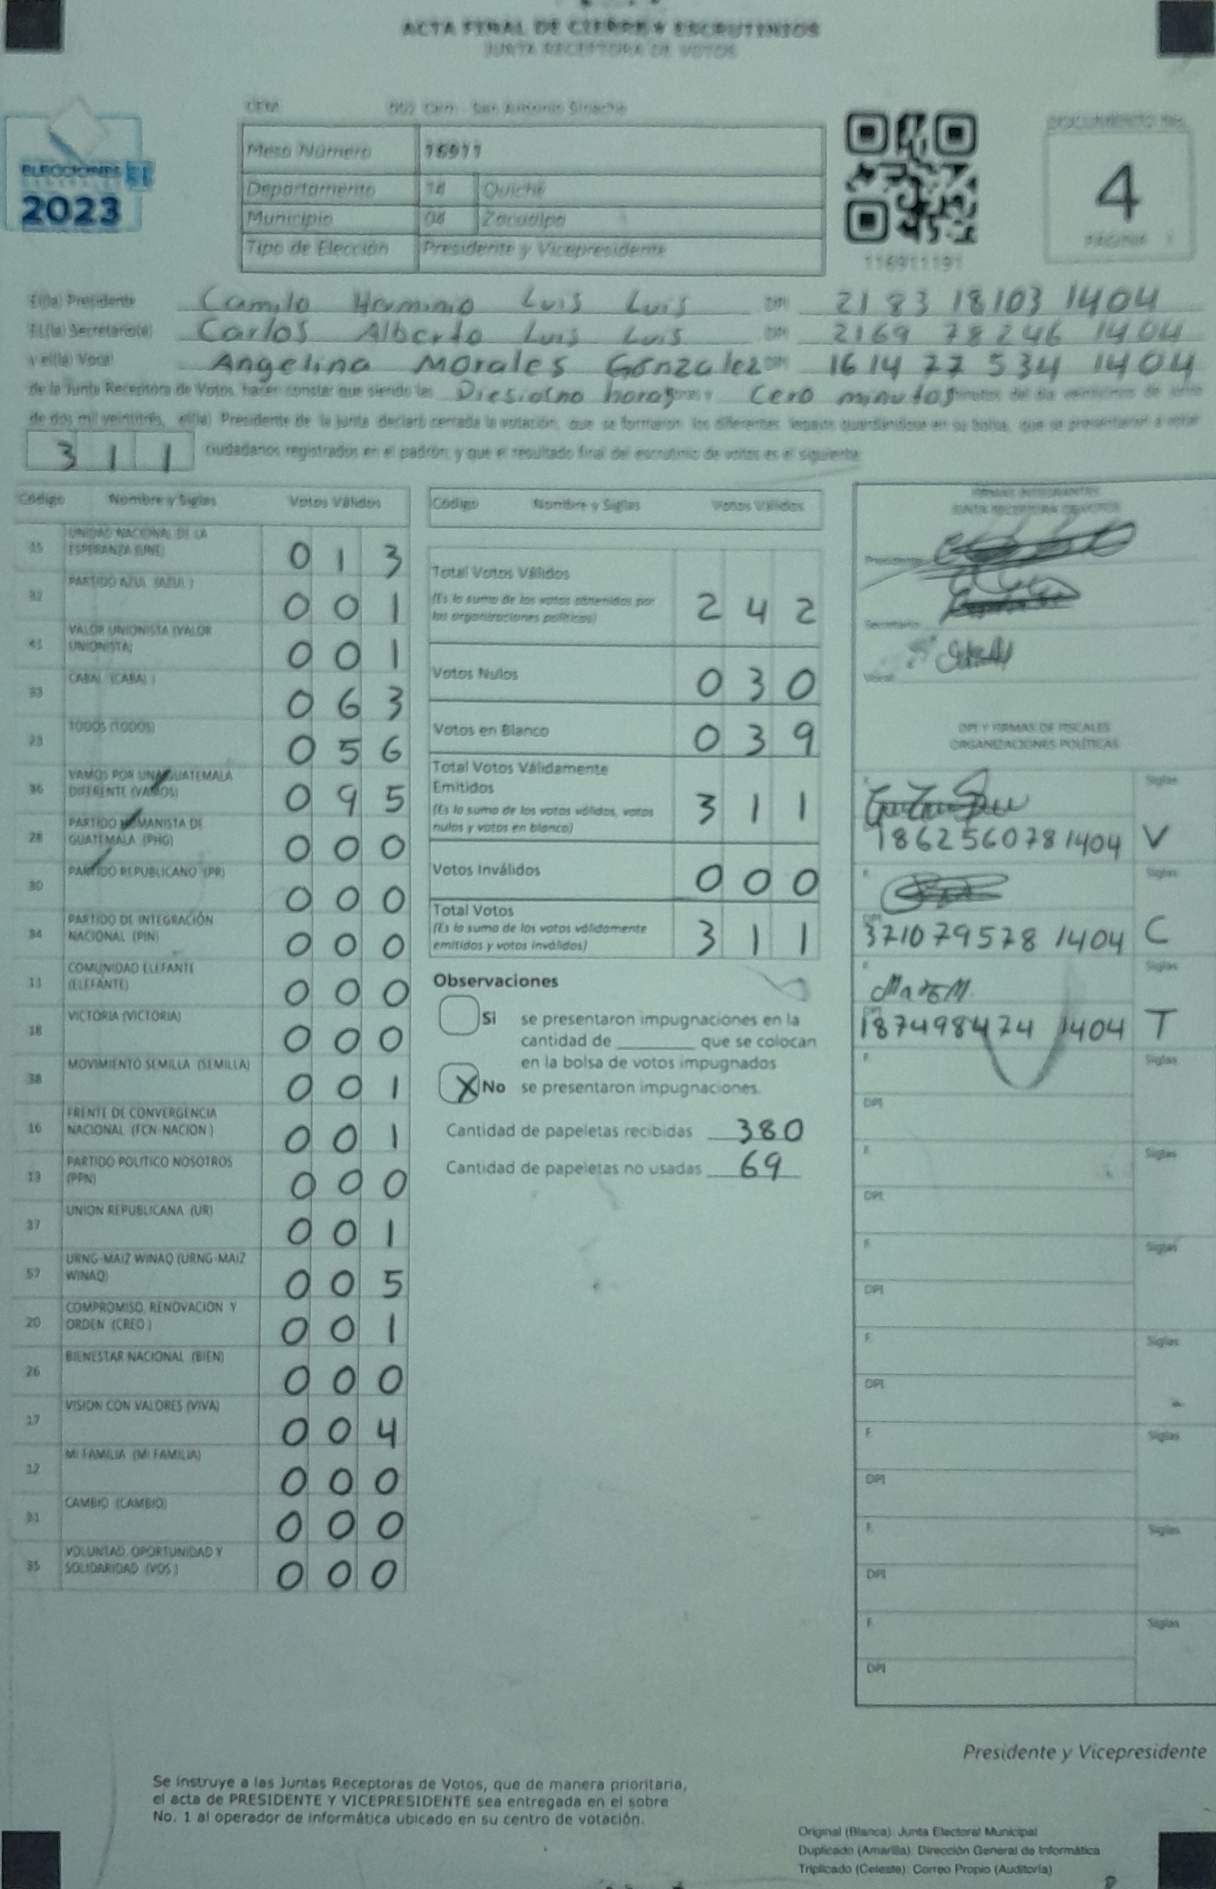 ACTA FINAL DE CIERRE Y ESCRUTINIOS
JUNTA RECEPTORA DE VOTOS
ELECCIONES
GENERALES
2023
Mesa Número
Departamento Quiché
Municipio 08 Zacualpa
Tipo de Elección Presidente y Vicepresidente
DOCUMENTO No.
4
El(la) Presidente Camilo Herminio Luis Luis DPI 2183 18103 1404
El(la) Secretario(a) Carlos Alberto Luis Luis DPI 2169 78246 1404
y el(la) Vocal Angelina Morales Gonzalez DPI 1614 77 534 1404
de la Junta Receptora de Votos, hacen constar que siendo las Diesiocho horas y Cero minutos minutos del día veinticinco de junio
de dos mil veintitrés, el(la) Presidente de la junta declaró cerrada la votación, que se formaron los diferentes legajos guardándose en su bolsa, que se presentaron a votar
311 ciudadanos registrados en el padrón y que el resultado final del escrutinio de votos es el siguiente:
Código Nombre y Siglas Votos Válidos
UNIDAD NACIONAL DE LA
15 ESPERANZA (UNE) 0 1 3
PARTIDO AZUL (AZUL) 0 0 1
VALOR UNIONISTA (VALOR
UNIONISTA) 0 0 1
CABAL (CABAL) 0 6 3
23 TODOS (TODOS) 0 5 6
VAMOS POR UNA GUATEMALA
36 DIFERENTE (VAMOS) 0 9 5
PARTIDO HUMANISTA DE
28 GUATEMALA (PHG) 0 0 0
30 PARTIDO REPUBLICANO (PR) 0 0 0
PARTIDO DE INTEGRACIÓN
34 NACIONAL (PIN) 0 0 0
COMUNIDAD ELEFANTE
11 (ELEFANTE) 0 0 0
18 VICTORIA (VICTORIA) 0 0 0
38 MOVIMIENTO SEMILLA (SEMILLA) 0 0 1
FRENTE DE CONVERGENCIA
16 NACIONAL (FCN-NACION) 0 0 1
PARTIDO POLITICO NOSOTROS
19 (PPN) 0 0 0
37 UNION REPUBLICANA (UR) 0 0 1
URNG-MAIZ WINAQ (URNG-MAIZ
57 WINAQ) 0 0 5
COMPROMISO, RENOVACION Y
20 ORDEN (CREO) 0 0 1
26 BIENESTAR NACIONAL (BIEN) 0 0 0
17 VISION CON VALORES (VIVA) 0 0 4
12 MI FAMILIA (MI FAMILIA) 0 0 0
CAMBIO (CAMBIO) 0 0 0
VOLUNTAD, OPORTUNIDAD Y
35 SOLIDARIDAD (VOS) 0 0 0
Código Nombre y Siglas Votos Válidos
Total Votos Válidos
(Es la suma de los votos obtenidos por
las organizaciones políticas) 2 4 2
Votos Nulos 0 3 0
Votos en Blanco 0 3 9
Total Votos Válidamente
Emitidos
(Es la suma de los votos válidos, votos
nulos y votos en blanco) 3 1 1
Votos Inválidos 0 0 0
Total Votos
(Es la suma de los votos válidamente
emitidos y votos inválidos) 3 1 1
Observaciones
Si se presentaron impugnaciones en la
cantidad de ________ que se colocan
en la bolsa de votos impugnados
X No se presentaron impugnaciones.
Cantidad de papeletas recibidas 380
Cantidad de papeletas no usadas 69
FIRMAS INTEGRANTES
JUNTA RECEPTORA DE VOTOS
Presidente
Secretario
Vocal
DPI Y FIRMAS DE FISCALES
ORGANIZACIONES POLÍTICAS
Siglas
1862560781404 V
Siglas
3710795781404 C
Siglas
1874984741404 T
F. Siglas
DPI
F. Siglas
DPI
F. Siglas
DPI
F. Siglas
DPI
F. Siglas
DPI
F. Siglas
DPI
F. Siglas
DPI
Presidente y Vicepresidente
Se instruye a las Juntas Receptoras de Votos, que de manera prioritaria,
el acta de PRESIDENTE Y VICEPRESIDENTE sea entregada en el sobre
No. 1 al operador de informática ubicado en su centro de votación.
Original (Blanca): Junta Electoral Municipal
Duplicado (Amarilla): Dirección General de Informática
Triplicado (Celeste): Correo Propio (Auditoría)